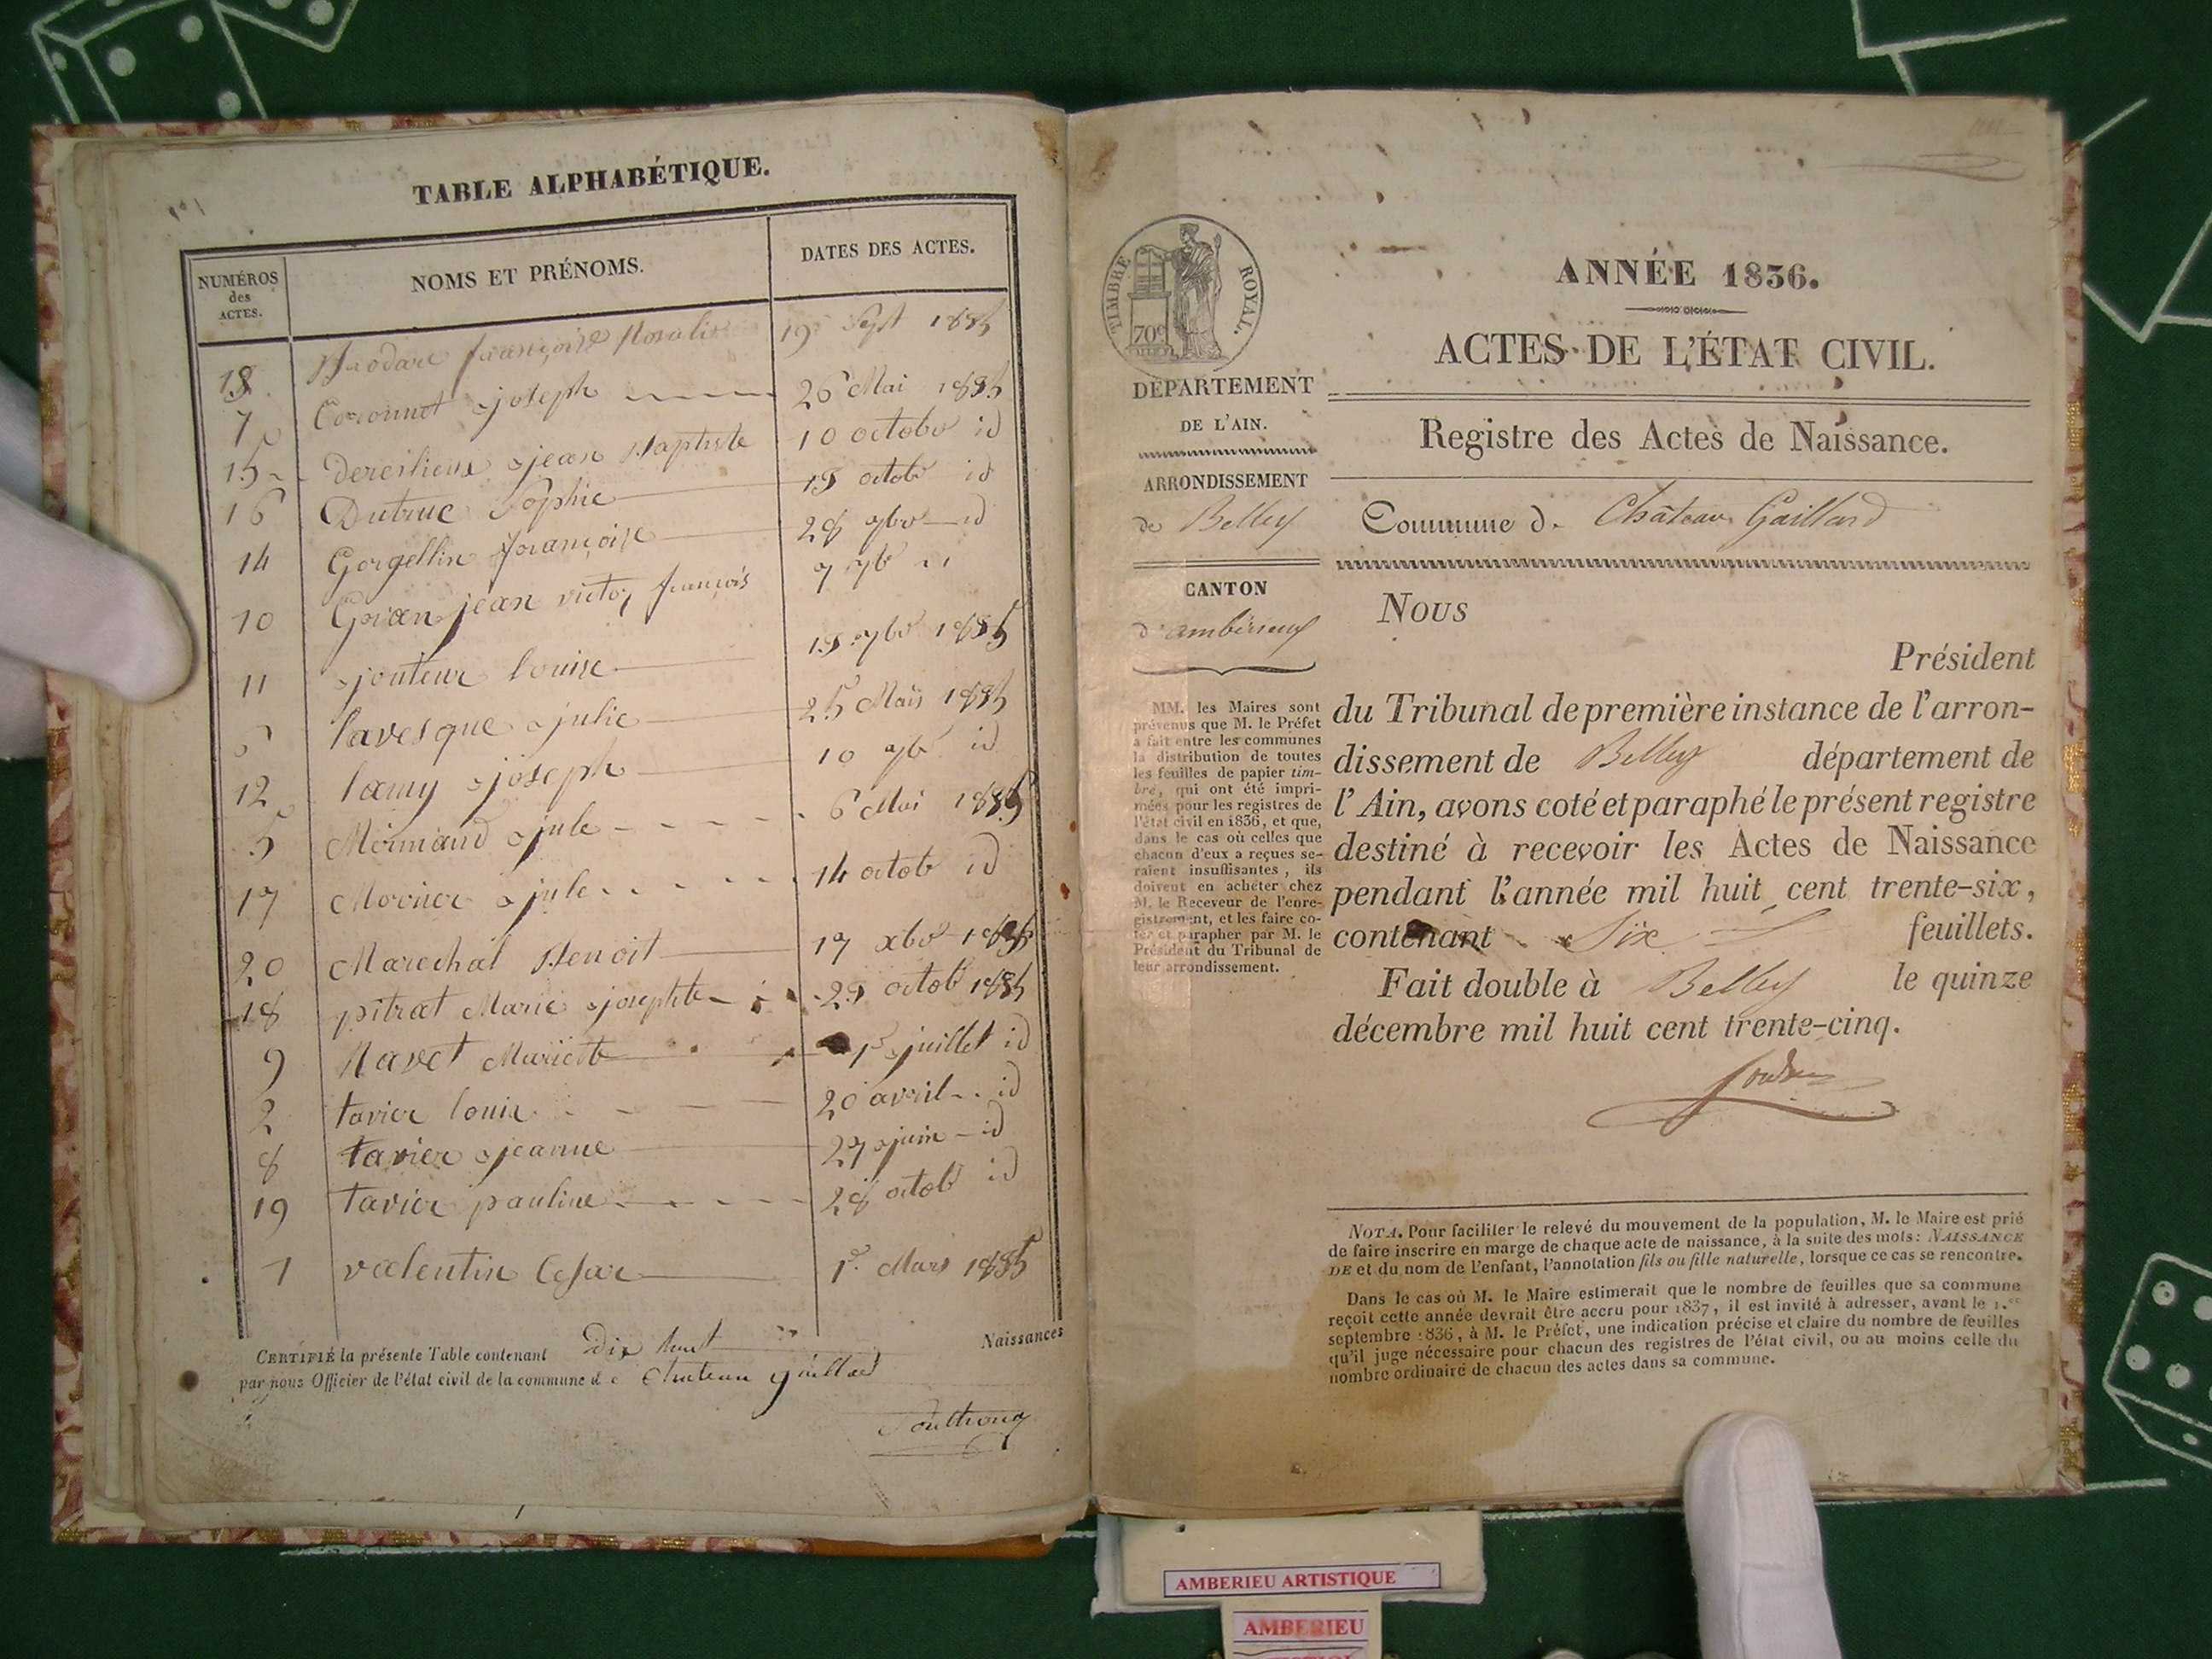 TABLE ALPHABÉTIQUE.
NUMÉROS des ACTES. NOMS ET PRÉNOMS. DATES DES ACTES.
françoise Rosalie 19 Sept 1835
7 joseph 26 Mai 1835
15 jean Baptiste 10 octobr id
16 Dutruc Sophie 19 octobr id
14 françoise 28 7br id
10 jean victor françois 7 7br
11 jouteur louise 7br 1835
6 lavesque julie 25 1835
12 lamy joseph 10 7br id
5 Mermand jule 6 Mai 1835
17 jule 14 octob id
20 Marechal Benoit 17 xbr 1835
18 pitrat Marie josephte 29 octob 1835
9 Mariette juillet id
2 tavier 20 avril id
8 tavier jeanne 27 juin id
19 tavier pauline 28 octob id
1 valentin Cesar 1er Mars 1835
CERTIFIÉ la présente Table contenant dix huit Naissances
par nous Officier de l'état civil de la commune de Chateau gaillard
TIMBRE ROYAL.
70c
DÉPARTEMENT
DE L'AIN.
ARRONDISSEMENT
de Belley
CANTON
d'ambérieux
MM. les Maires sont
prévenus que M. le Préfet
a fait entre les communes
la distribution de toutes
les feuilles de papier tim-
bre, qui ont été impri-
mées pour les registres de
l'état civil en 1836, et que,
dans le cas où celles que
chacun d'eux a reçues se-
raient insuffisantes, ils
doivent en acheter chez
M. le Receveur de l'enre-
gistrement, et les faire co-
ter et parapher par M. le
Président du Tribunal de
leur arrondissement.
ANNÉE 1836.
ACTES DE L'ÉTAT CIVIL.
Registre des Actes de Naissance.
Commune de Château Gaillard
Nous
Président
du Tribunal de première instance de l'arron-
dissement de Belley département de
l'Ain, avons coté et paraphé le présent registre
destiné à recevoir les Actes de Naissance
pendant l'année mil huit cent trente-six,
contenant Six feuillets.
Fait double à Belley le quinze
décembre mil huit cent trente-cinq.
NOTA. Pour faciliter le relevé du mouvement de la population, M. le Maire est prié
de faire inscrire en marge de chaque acte de naissance, à la suite des mots: NAISSANCE
DE et du nom de l'enfant, l'annotation fils ou fille naturelle, lorsque ce cas se rencontre.
Dans le cas où M. le Maire estimerait que le nombre de feuilles que sa commune
reçoit cette année devrait être accru pour 1837, il est invité à adresser, avant le 1.er
septembre 1836, à M. le Préfet, une indication précise et claire du nombre de feuilles
qu'il juge nécessaire pour chacun des registres de l'état civil, ou au moins celle du
nombre ordinaire de chacun des actes dans sa commune.
AMBERIEU ARTISTIQUE
AMBERIEU